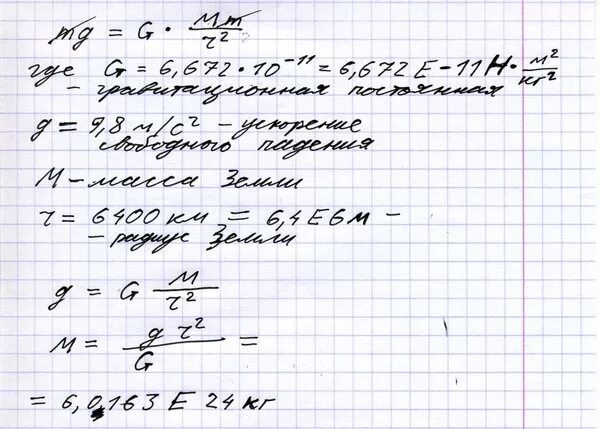 mg = G · Mm / r²
где G = 6,672 · 10⁻¹¹ = 6,672 E - 11 Н · м²/кг²
- гравитационная постоянная
g = 9,8 м/с² - ускорение
свободного падения
М - масса Земли
r = 6400 км = 6,4 E6 м -
- радиус Земли
g = G M / r²
M = g r² / G =
= 6,0163 E 24 кг